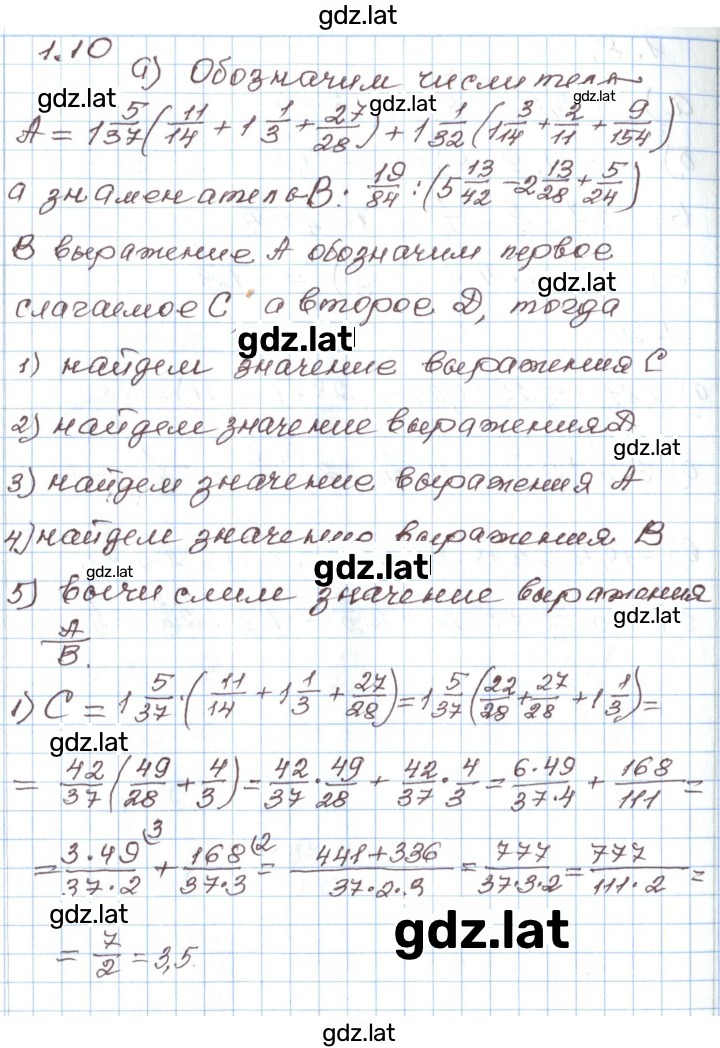 gdz.lat
1.10
а) Обозначим числитель
gdz.lat gdz.lat gdz.lat
A = 1 5/37 (11/14 + 1 1/3 + 27/28) + 1 1/32 (1 3/14 + 2/11 + 9/154)
а знаменатель B: 19/84 : (5 13/42 - 2 13/28 + 5/24)
В выражение A обозначим первое
gdz.lat
слагаемое C а второе D, тогда
gdz.lat
1) найдем значение выражения C
2) найдем значение выражения D
gdz.lat
3) найдем значение выражения A
4) найдем значению выражения B
gdz.lat gdz.lat
5) вычислим значение выражения
gdz.lat
A/B.
1) C = 1 5/37 · (11/14 + 1 1/3 + 27/28) = 1 5/37 (22/28 + 27/28 + 1 1/3) =
gdz.lat
= 42/37 (49/28 + 4/3) = 42/37 · 49/28 + 42/37 · 4/3 = 6·49/37·4 + 168/111 =
= 3·49/37·2 (3 + 168/37·3 (2 = 441+336/37·2·3 = 777/37·3·2 = 777/111·2 =
gdz.lat gdz.lat
= 7/2 = 3,5
gdz.lat